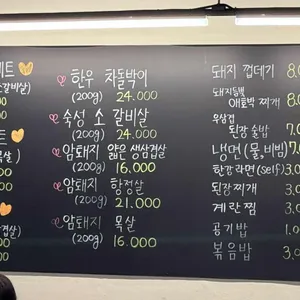 세트
소갈비살)
00
00
한우 차돌박이
(200g) 24.000
숙성 소 갈비살
(200g) 24.000
암퇘지 얇은 생삼겹살
(200g) 16.000
암퇘지 항정살
(200g) 21.000
암퇘지 목살
(200g) 16.000
돼지 껍데기 8
돼지듬뿍
애호박 찌개 8.
우삼겹
된장술밥 7.0
냉면(물,비빔) 7.
한강라면(self) 3.0
된장찌개 3.
계란찜 3.0
공기밥 1.0
볶음밥 3.0